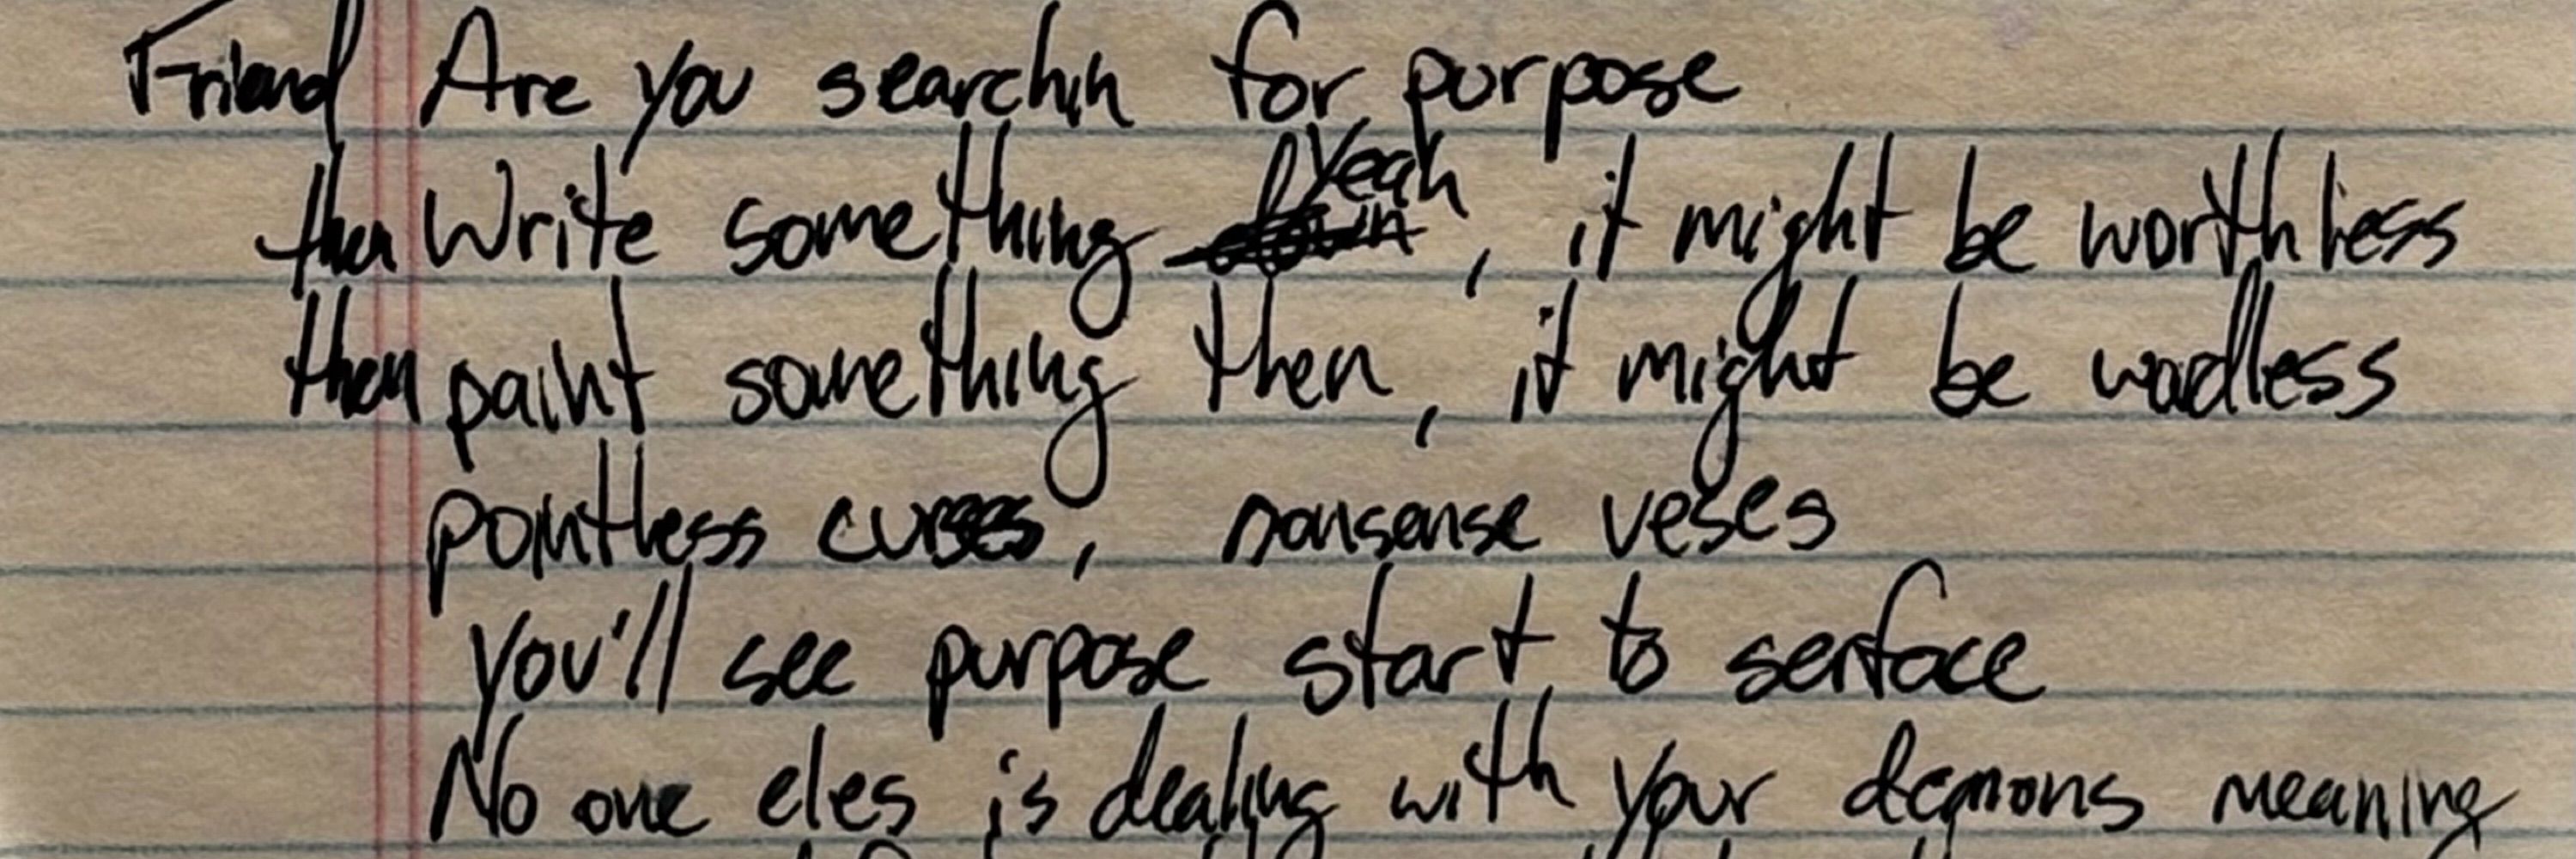 Friend Are you searchin for purpose
then Write something yeah, it might be worthless
then paint something then, it might be wordless
pointless curses, nonsense veses
you'll see purpose start to serface
No one eles is dealing with your demons meaning